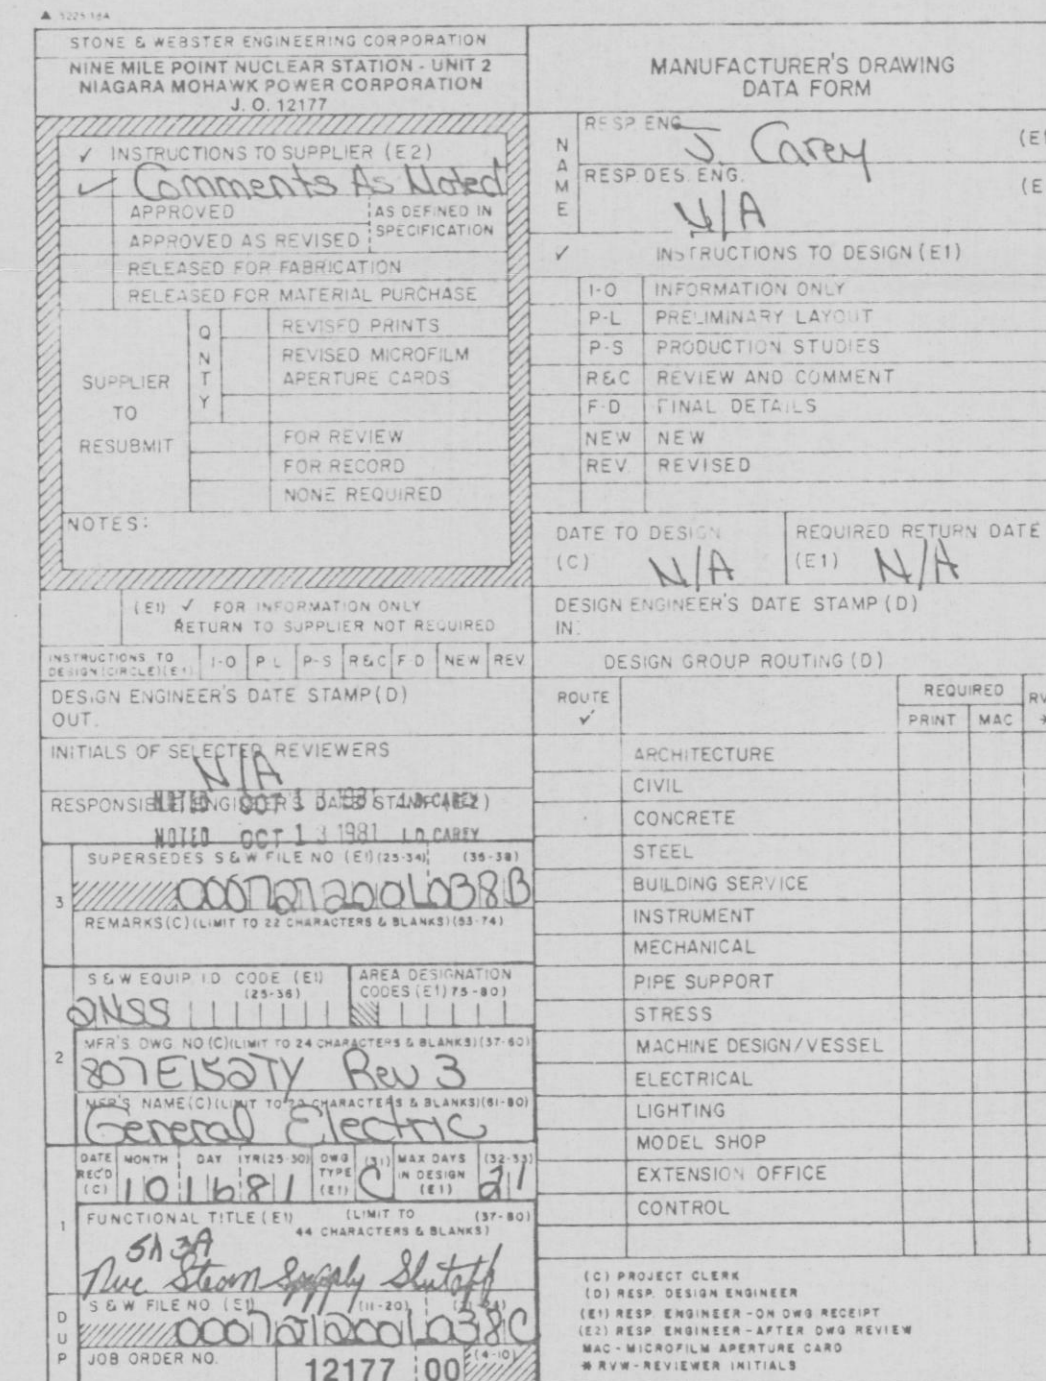 ▲ 5225-18A
STONE & WEBSTER ENGINEERING CORPORATION
NINE MILE POINT NUCLEAR STATION - UNIT 2
NIAGARA MOHAWK POWER CORPORATION
J. O. 12177
✓ INSTRUCTIONS TO SUPPLIER (E2)
✓ Comments As Noted
APPROVED
APPROVED AS REVISED
AS DEFINED IN
SPECIFICATION
RELEASED FOR FABRICATION
RELEASED FOR MATERIAL PURCHASE
SUPPLIER
TO
RESUBMIT
QNTY
REVISED PRINTS
REVISED MICROFILM
APERTURE CARDS
FOR REVIEW
FOR RECORD
NONE REQUIRED
NOTES:
(E1) ✓ FOR INFORMATION ONLY
RETURN TO SUPPLIER NOT REQUIRED
INSTRUCTIONS TO
DESIGN (CIRCLE)(E1)
I-O P-L P-S R&C F-D NEW REV.
DESIGN ENGINEER'S DATE STAMP (D)
OUT.
INITIALS OF SELECTED REVIEWERS
N/A
RESPONSIBLE ENGINEER'S DATE STAMP (E2)
NOTED OCT 13 1981 J.D. CAREY
NOTED OCT 13 1981 J.D. CAREY
3
SUPERSEDES S & W FILE NO (E1)(25-34) (35-38)
REMARKS (C) (LIMIT TO 22 CHARACTERS & BLANKS) (53-74)
S & W EQUIP I.D. CODE (E1)
(25-36)
2NSS
AREA DESIGNATION
CODES (E1) 75-80)
2
MFR'S. DWG. NO (C) (LIMIT TO 24 CHARACTERS & BLANKS) (37-60)
807E152TY Rev 3
MFR'S NAME (C) (LIMIT TO 20 CHARACTERS & BLANKS) (61-80)
General Electric
DATE
REC'D
(C)
MONTH DAY YR (25-30)
101681
DWG
TYPE
(E1)
(31)
C
MAX DAYS
IN DESIGN
(E1)
(32-33)
21
1
FUNCTIONAL TITLE (E1) (LIMIT TO (37-80)
44 CHARACTERS & BLANKS)
Nuc Steam Supply Shutoff
DUP
S & W FILE NO. (E1) (11-20)
JOB ORDER NO.
12177 00
(4-10)
MANUFACTURER'S DRAWING
DATA FORM
NAME
RESP. ENG.
J. Carey
RESP. DES. ENG.
N/A
✓ INSTRUCTIONS TO DESIGN (E1)
I-O INFORMATION ONLY
P-L PRELIMINARY LAYOUT
P-S PRODUCTION STUDIES
R&C REVIEW AND COMMENT
F-D FINAL DETAILS
NEW NEW
REV. REVISED
DATE TO DESIGN
(C) N/A
REQUIRED RETURN DATE
(E1) N/A
DESIGN ENGINEER'S DATE STAMP (D)
IN:
DESIGN GROUP ROUTING (D)
ROUTE
✓
REQUIRED
PRINT MAC
ARCHITECTURE
CIVIL
CONCRETE
STEEL
BUILDING SERVICE
INSTRUMENT
MECHANICAL
PIPE SUPPORT
STRESS
MACHINE DESIGN/VESSEL
ELECTRICAL
LIGHTING
MODEL SHOP
EXTENSION OFFICE
CONTROL
(C) PROJECT CLERK
(D) RESP. DESIGN ENGINEER
(E1) RESP. ENGINEER - ON DWG RECEIPT
(E2) RESP. ENGINEER - AFTER DWG REVIEW
MAC - MICROFILM APERTURE CARD
* RVW - REVIEWER INITIALS